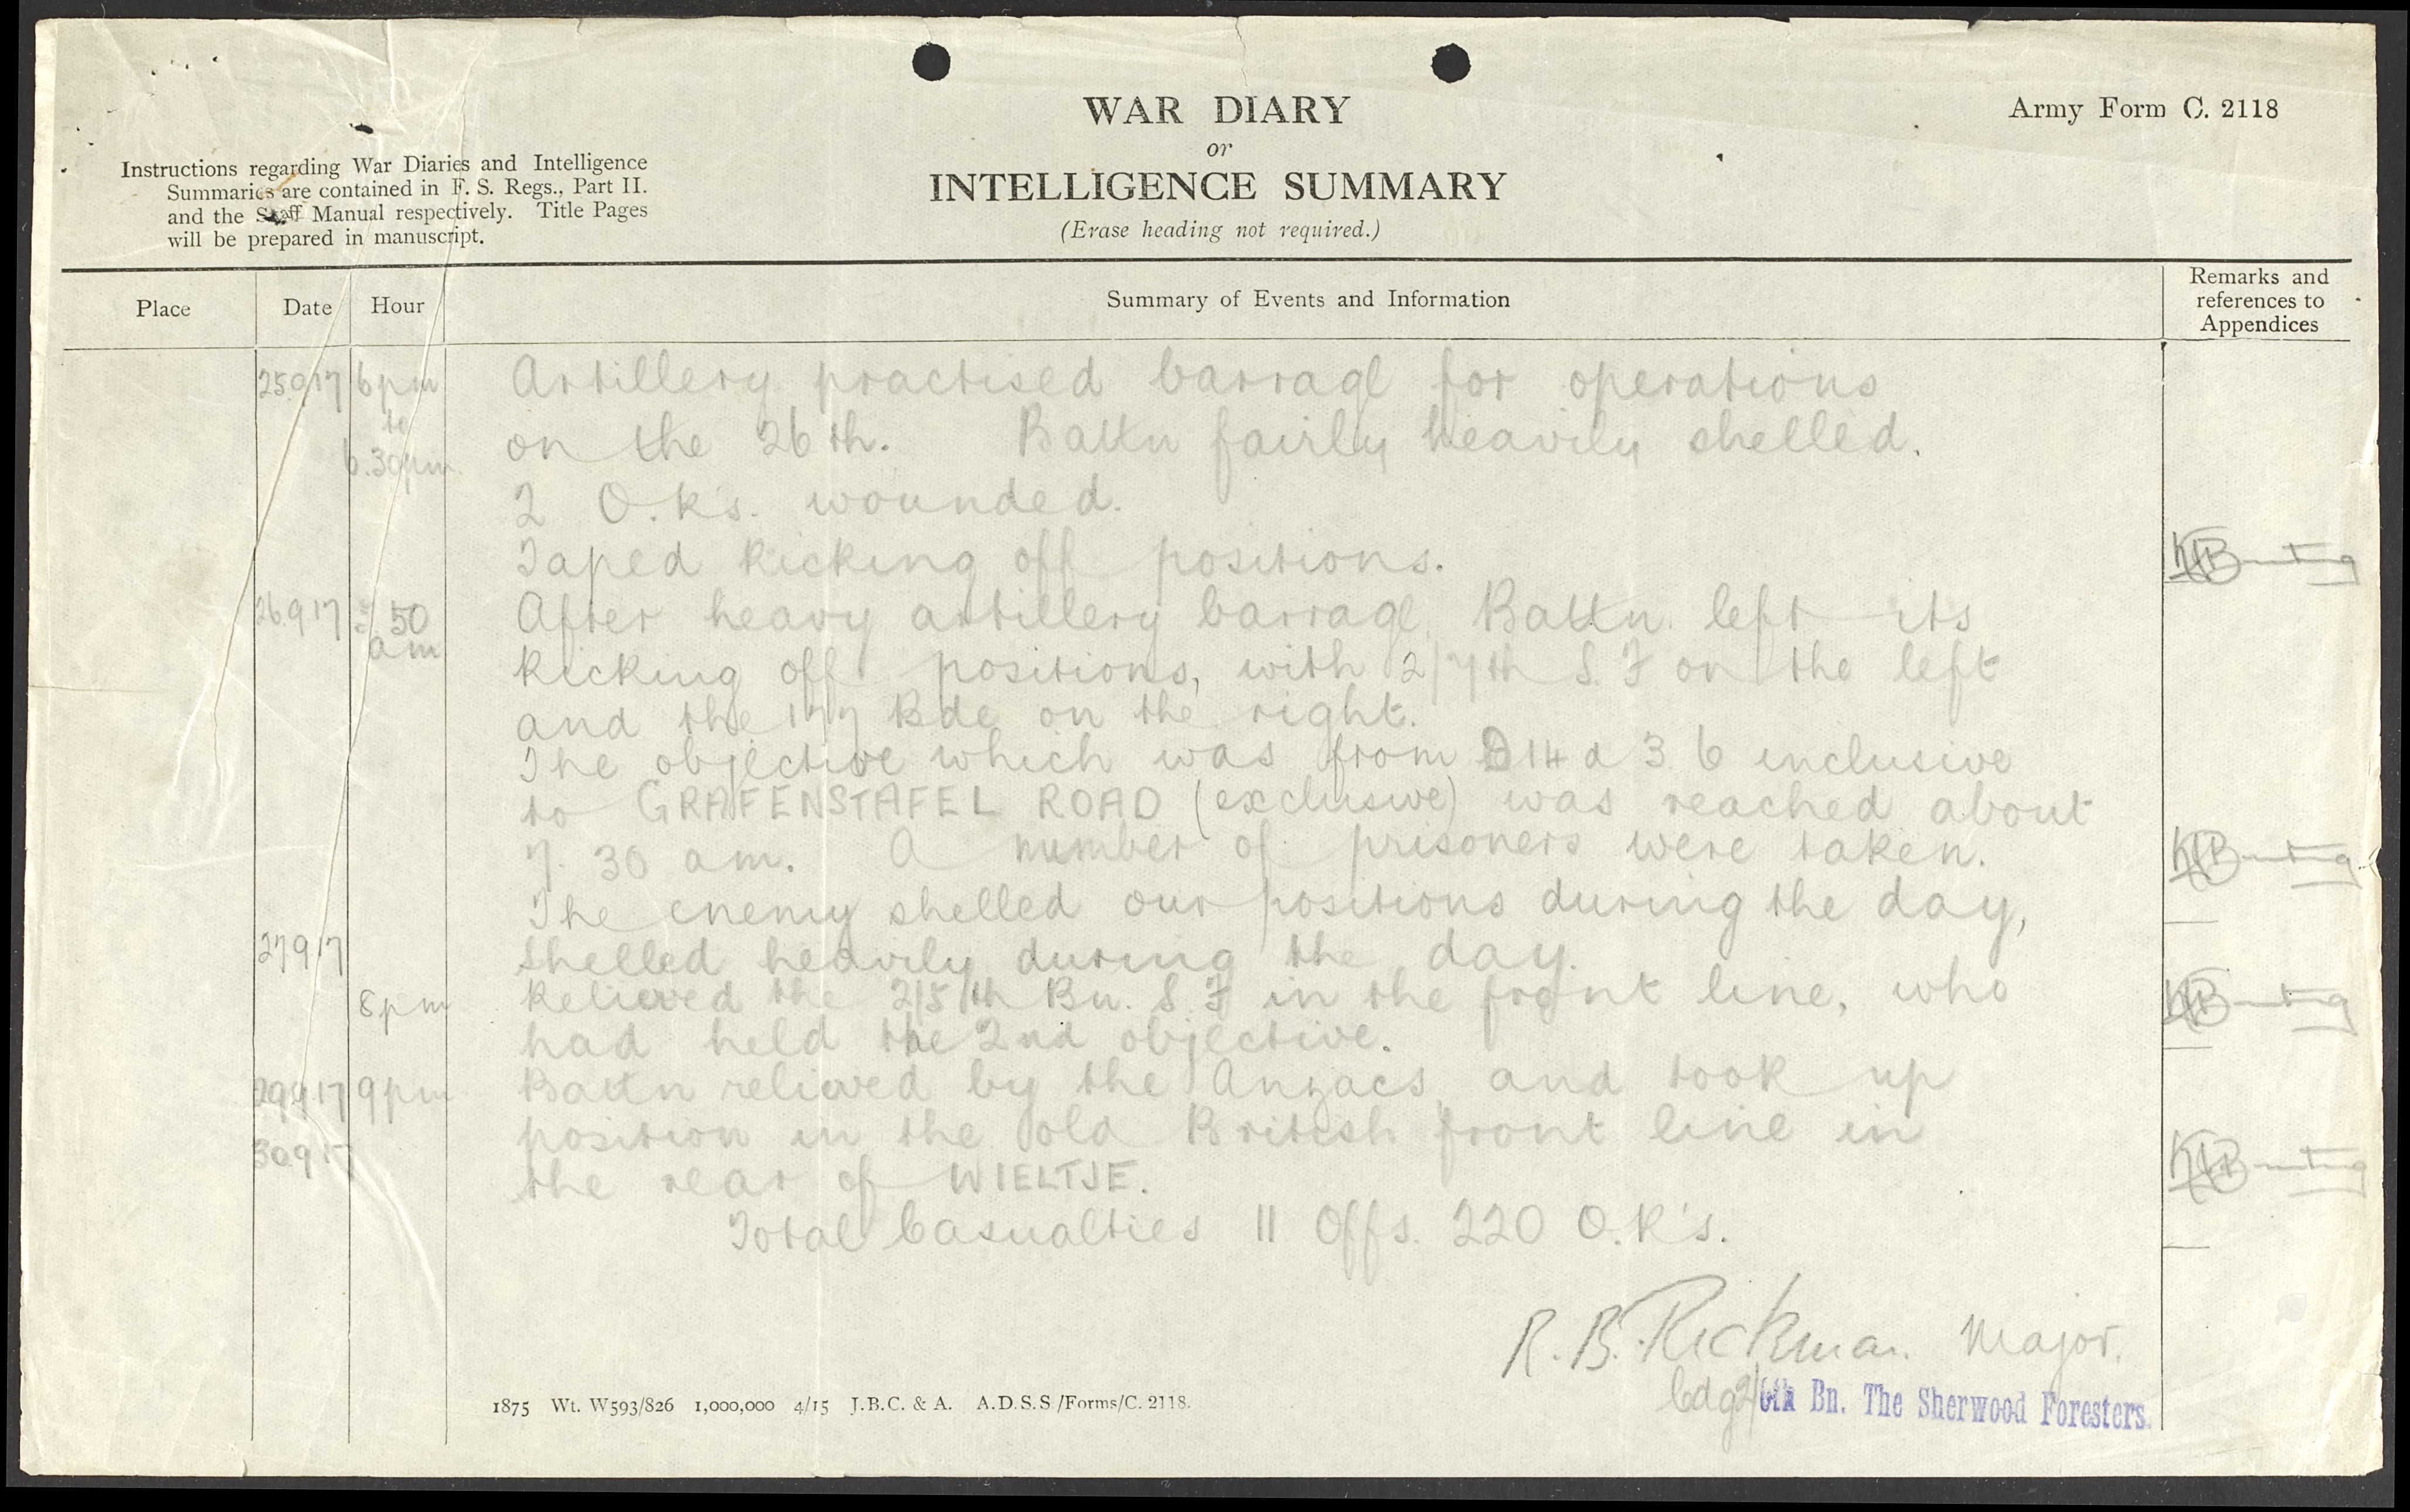 WAR DIARY
or
INTELLIGENCE SUMMARY
(Erase heading not required.)
Army Form C. 2118
Instructions regarding War Diaries and Intelligence
Summaries are contained in F. S. Regs., Part II.
and the Staff Manual respectively. Title Pages
will be prepared in manuscript.
Place
Date
Hour
Summary of Events and Information
Remarks and
references to
Appendices
25.9.17 6pm Artillery practised barrage for operations
to on the 26th. Battn fairly heavily shelled.
6.30pm.
2 O.R's. wounded.
Taped kicking off positions.
26.9.17 50 After heavy artillery barrage, Battn. left its
am kicking off positions, with 2/7th S.F on the left
and the 177 Bde on the right.
The objective which was from D14 d 3.6 inclusive
to GRAFENSTAFEL ROAD (exclusive) was reached about
7.30 am. A number of prisoners were taken.
The enemy shelled our positions during the day,
27 9 17 Shelled heavily during the day.
8pm Relieved the 2/5th Bn. S.F in the front line, who
had held the 2nd objective.
29.9.17 9pm Battn relieved by the Anzacs, and took up
position in the old British front line in
30.9.17 the rear of WIELTJE.
Total Casualties 11 Offs. 220 O.R's.
R.B. Rickman. Major.
Cdg 2/6th Bn. The Sherwood Foresters.
1875 Wt. W593/826 1,000,000 4/15 J.B.C. & A. A.D.S.S./Forms/C. 2118.